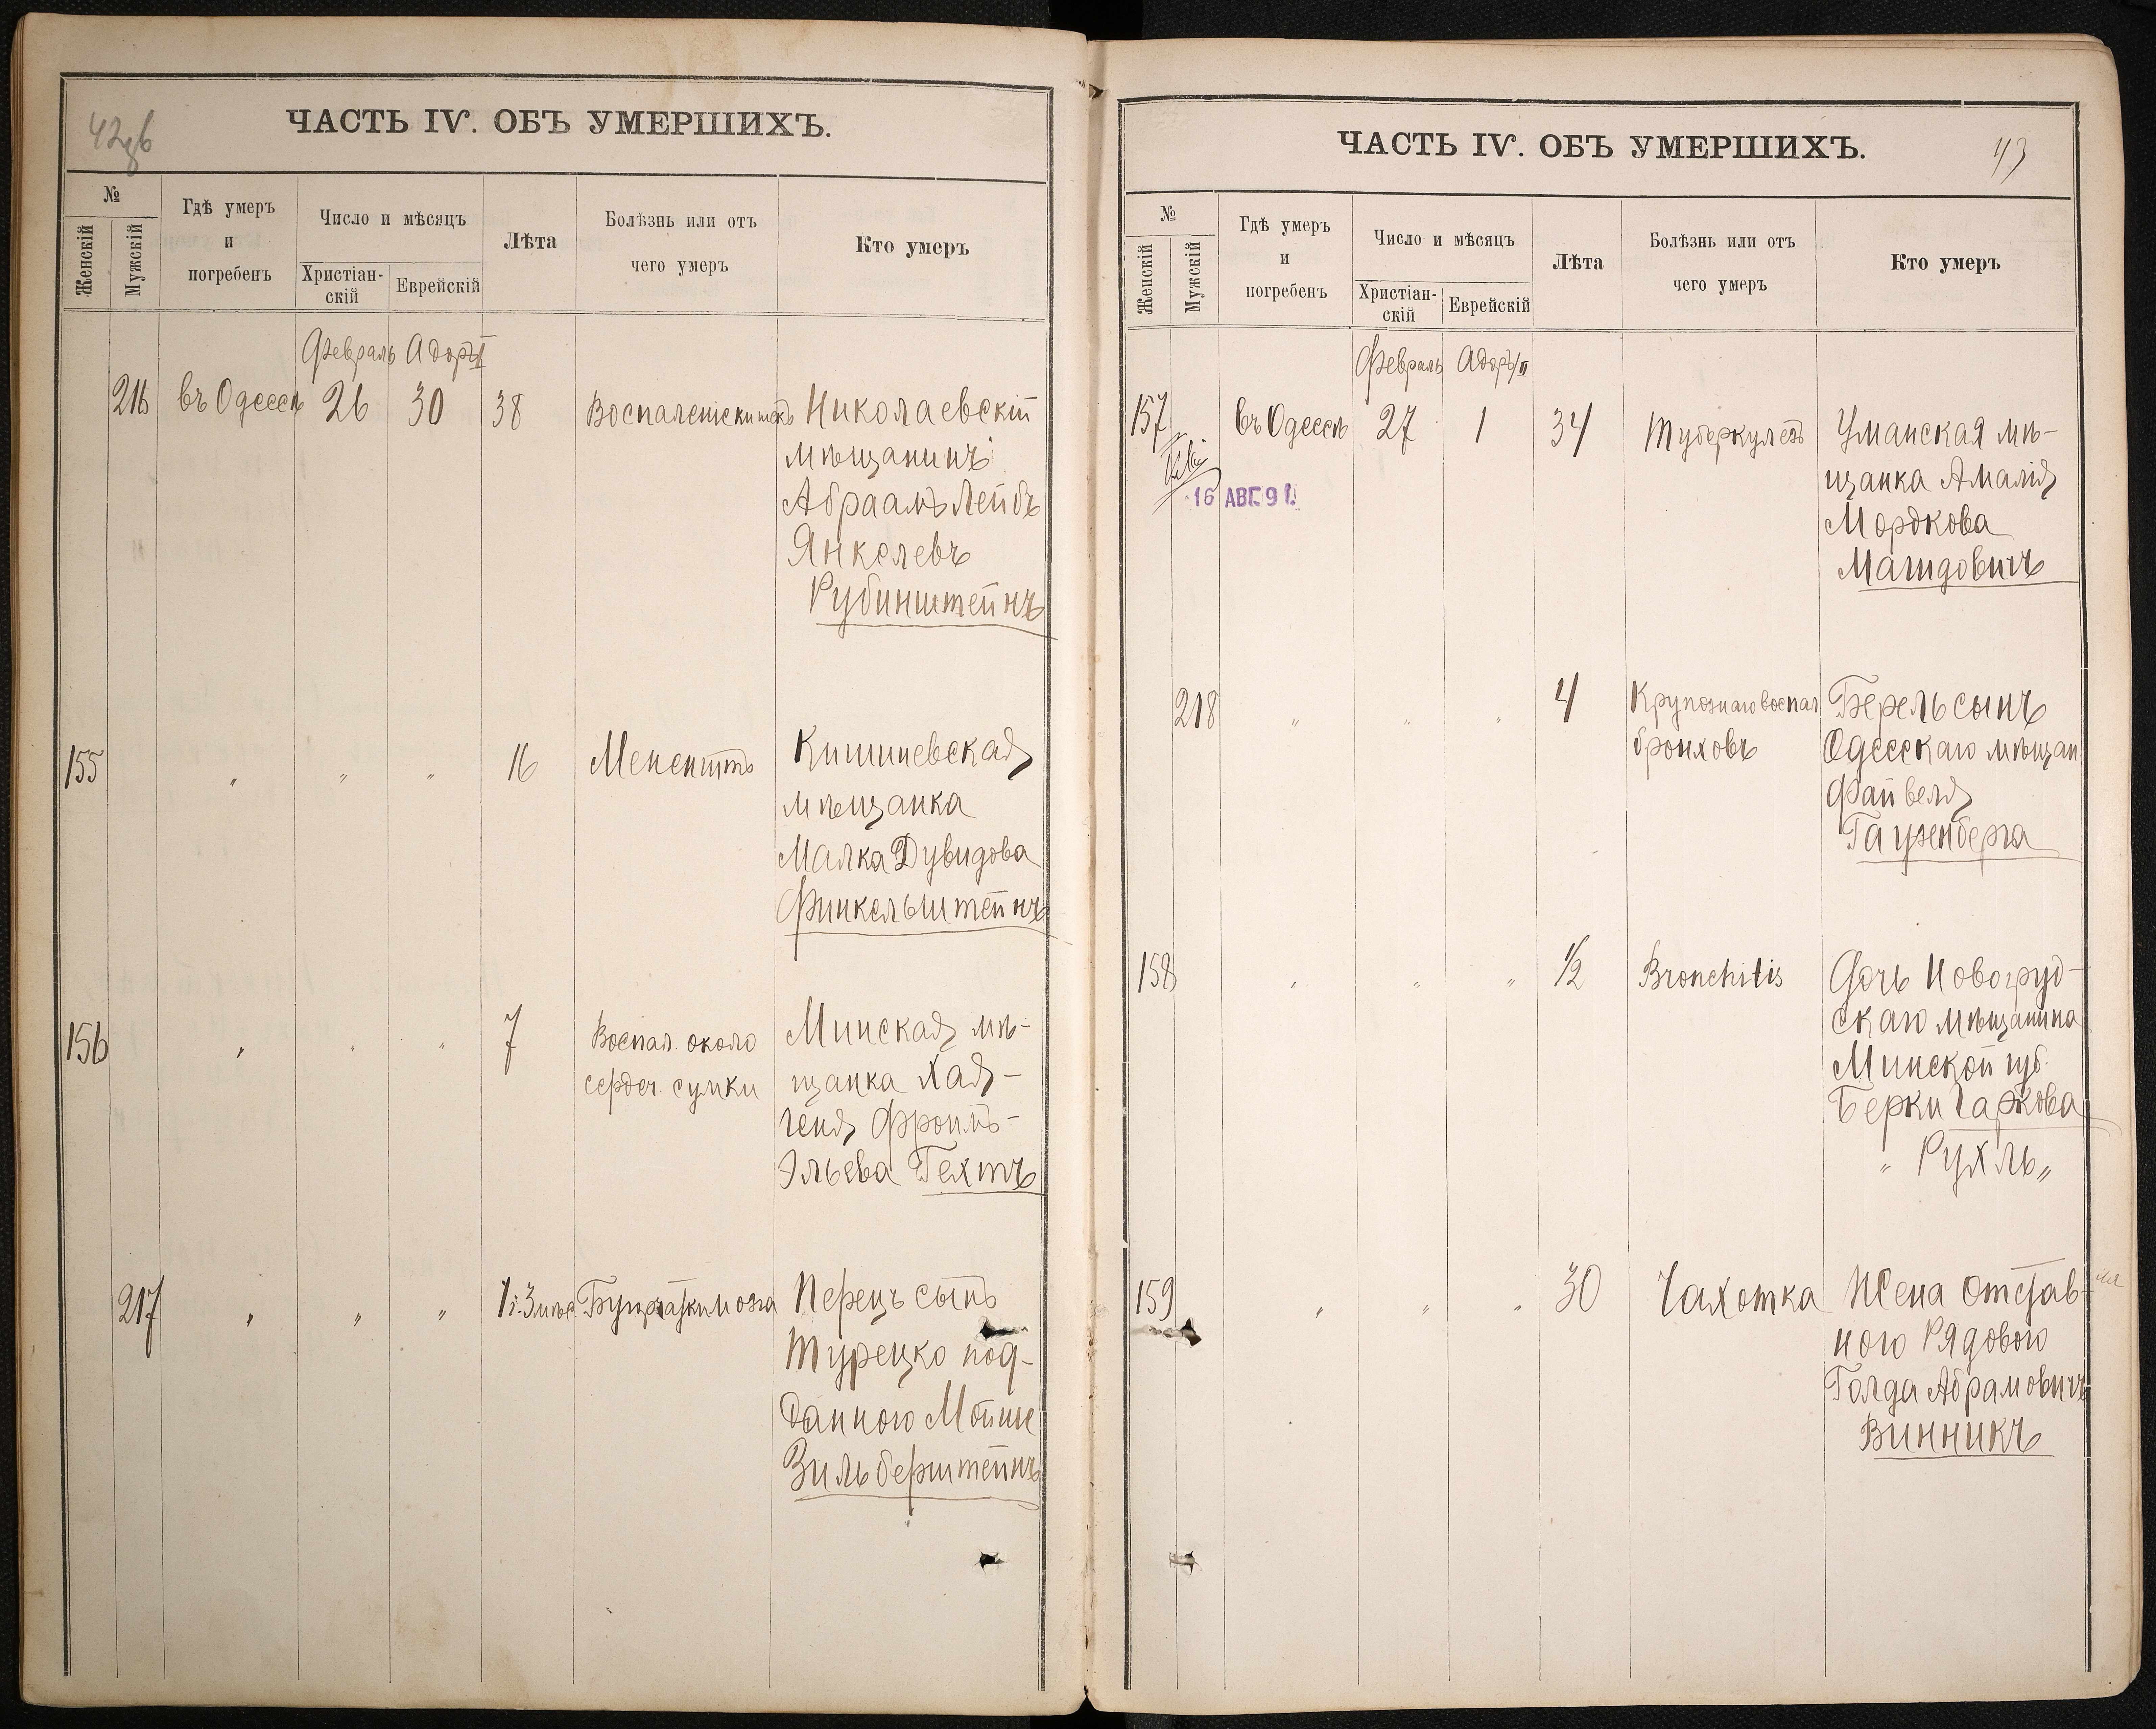 42об
ЧАСТЬ IV. ОБЪ УМЕРШИХЪ.
№
Женскій
Мужскій
Гдѣ умеръ
и
погребенъ
Число и мѣсяцъ
Христіан-
скій
Еврейскій
Лѣта
Болѣзнь или отъ
чего умеръ
Кто умеръ
Февраль Адоръ I
216 въ Одессѣ 26 30 38 Воспаленіе кишекъ Николаевскій
мѣщанинъ
Абраамъ Лейбъ
Янкелевъ
Рубинштейнъ
155 " " " 16 Менентъ Кишиневская
мѣщанка
Малка Дувидова
Финкельштейнъ
156 " " " 7 Воспал. около Минская мѣ-
сердеч. сумки щанка Хая-
Геня Фроимъ-
Эльева Гехтъ
217 " " " 1 г. 3 мѣс. Бугорчатки мозга Перецъ сынъ
Турецко под-
даннаго Мойше
Зильберштейнъ
ЧАСТЬ IV. ОБЪ УМЕРШИХЪ.
43
№
Женскій
Мужскій
Гдѣ умеръ
и
погребенъ
Число и мѣсяцъ
Христіан-
скій
Еврейскій
Лѣта
Болѣзнь или отъ
чего умеръ
Кто умеръ
Февраль Адоръ/II
157 въ Одессѣ 27 1 34 Туберкулезъ Уманская мѣ-
16 АВГ. 91. щанка Амалія
Мордкова
Магидовичъ
218 " " " 4 Крупознаго воспал Берель сынъ
бронховъ Одесскаго мѣщан
Файвеля
Гаузенберга
158 " " " 1/2 Bronchitis Дочь Новогруд-
скаго мѣщанина
Минской губ.
Берки Чаркова
" Рухль "
159 " " " 30 Чахотка Жена отстав-
ного Рядового
Голда Абрамовичъ
Винникъ